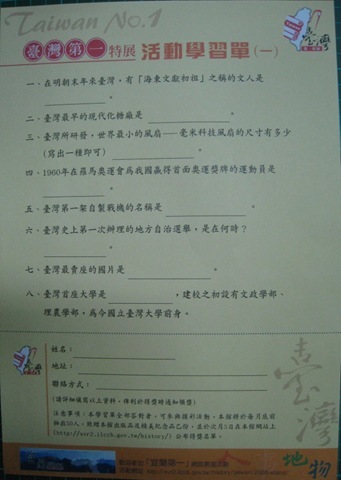 Taiwan No.1
臺灣第一特展 活動學習單(一)
一、在明朝末年來臺灣，有「海東文獻初祖」之稱的文人是
。
二、臺灣最早的現代化糖廠是 。
三、臺灣所研發，世界最小的風扇——毫米科技風扇的尺寸有多少
(寫出一種即可) 。
四、1960年在羅馬奧運會為我國贏得首面奧運獎牌的運動員是
。
五、臺灣第一架自製戰機的名稱是 。
六、臺灣史上第一次辦理的地方自治選舉，是在何時？
。
七、臺灣最賣座的國片是 。
八、臺灣首座大學是 ，建校之初設有文政學部、
理農學部，為今國立臺灣大學前身。
姓名：
地址：
聯絡方式：
(請詳細填寫以上資料，俾利於得獎時通知領獎)
注意事項：本學習單全部答對者，可參與摸彩活動，本館將於每月底前
抽出10人，致贈本館出版品及精美紀念品乙份，並於次月5日在本館網站上
公布得獎名單。
臺灣
地物